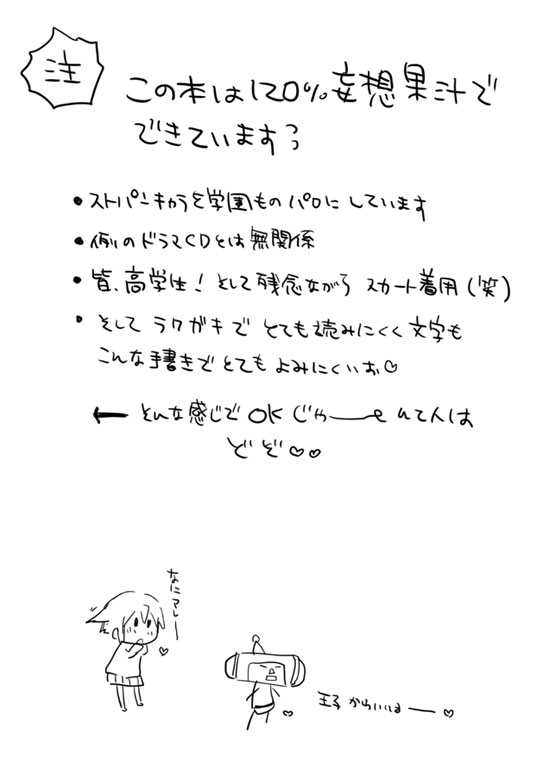 注
この本は120%妄想果汁で
できています
・ストパンキャラを学園ものパロにしています
・例のドラマCDとは無関係
・皆、高学生!そして残念ながら スカート着用(笑)
・そして ラクガキで とても読みにくく文字も
こんな手書きでとてもよみにくいお♡
← そんな感じで OK じゃーーe んて人は
どぞ♡♡
なにアレー
♡
王子 かわいいはー ♡